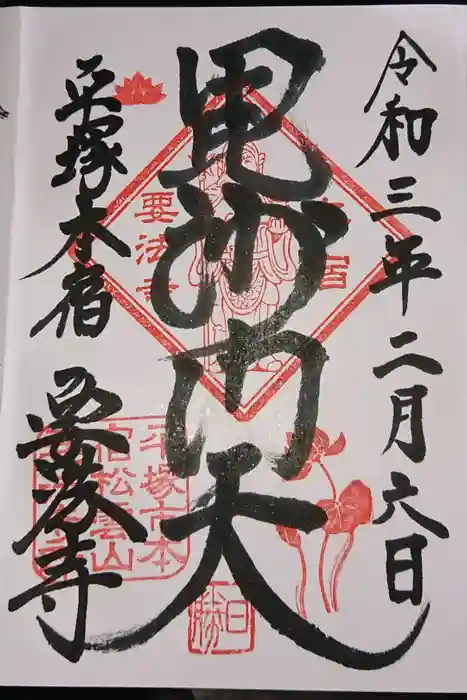 令和三年二月六日
毘沙門天
平塚本宿
要法寺
本宿
要法寺
平塚市本
松雲山
日勝